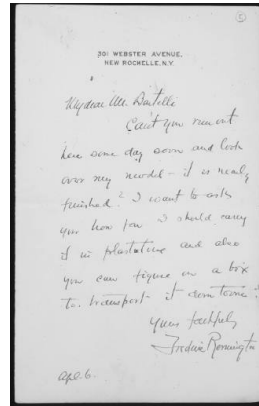 5
301 WEBSTER AVENUE,
NEW ROCHELLE, N.Y.
My dear Mr. Bertelli
Can't you run out
here some day soon and look
over my model - it is nearly
finished? I want to ask
you how far I should carry
it in plastaline and also
you can figure on a box
to transport it down town?
Yours faithfully
Frederic Remington
Apl. 6.